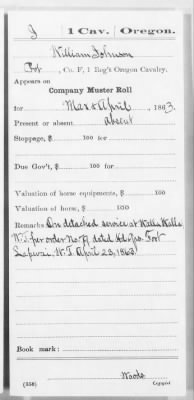 J | 1 Cav. | Oregon.
William Johnson
Pvt, Co. F, 1 Reg't Oregon Cavalry.
Appears on
Company Muster Roll
for Mar & April, 1863.
Present or absent absent
Stoppage, $ 100 for
Due Gov't, $ 100 for
Valuation of horse equipments, $ 100
Valuation of horse, $ 100
Remarks: On detached service at Walla Walla
W.T. per order No. dated Hdqrs. Fort
Lapwai, W.T. April 23, 1863.
Book mark:
Woods
(358) Copyist.